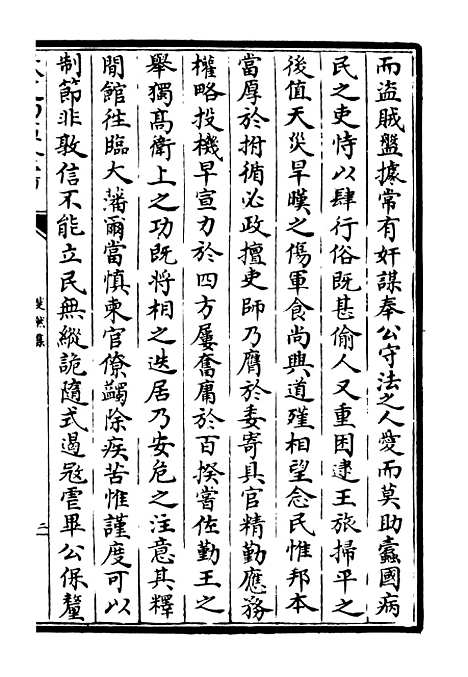 而盜賊盤據常有奸謀奉公守法之人愛而莫助蠹國病
民之吏恃以肆行俗既甚偷人又重困逮王旅掃平之
後值天災旱暵之傷軍食尚興道殣相望念民惟邦本
當厚於拊循必政擅吏師乃膺於委寄具官精勤應務
權略投機早宣力於四方屢奮庸於百揆嘗佐勤王之
舉獨高衛上之功既將相之迭居乃安危之注意其釋
閒館往臨大藩爾當慎柬官僚蠲除疾苦惟謹度可以
制節非敦信不能立民無縱詭隨式遏寇虐畢公保釐
斐然集
二